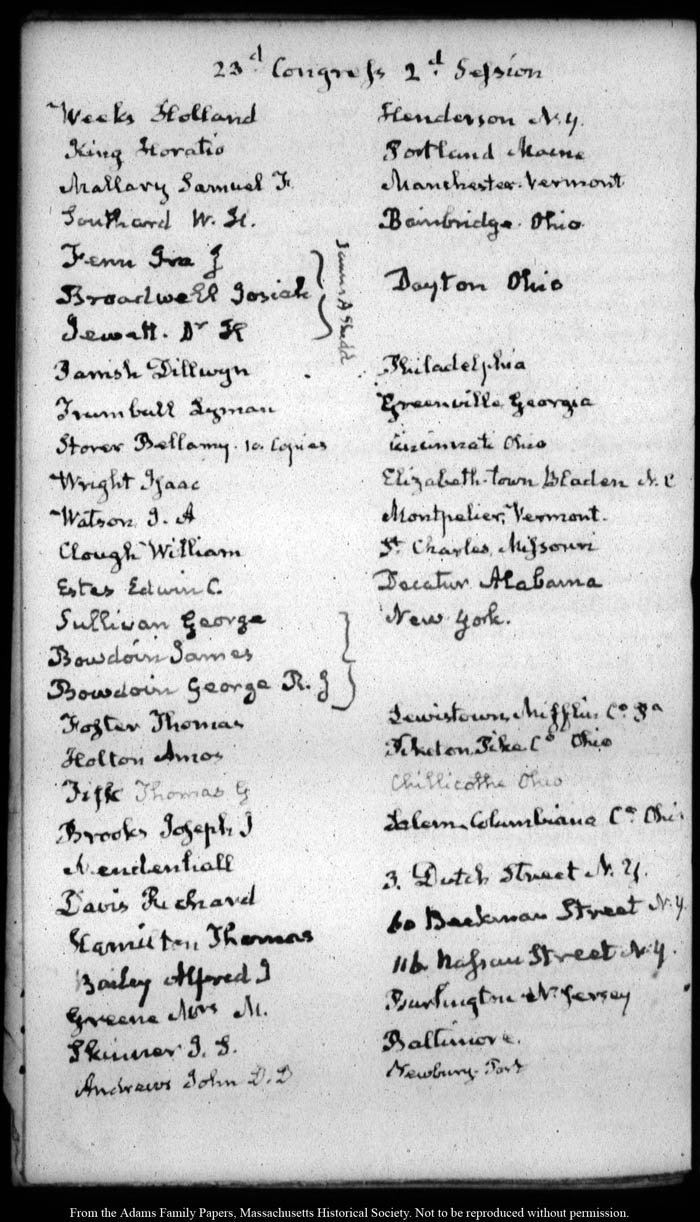 23d Congress 2d Session
Weeks Holland Henderson N.Y.
King Horatio Portland Maine
Mallary Samuel F. Manchester Vermont
Southard W. H. Bainbridge Ohio
Fenn Ira J
Broadwell Josiah Dayton Ohio
Jewett. Dr H
James A Shedd
Parrish Dillwyn Philadelphia
Trumbull Lyman Greenville, Georgia
Storer Bellamy. 10 Copies Cincinnati Ohio
Wright Isaac Elizabeth-town Bladen N.C
Watson J. A Montpelier, Vermont.
Clough William St Charles, Missouri
Estes Edwin C. Decatur Alabama
Sullivan George New York.
Bowdoin James
Bowdoin George R. J
Foster Thomas Lewistown, Mifflin Co Pa
Holton Amos Piketon Pike Co Ohio
Fisk Thomas G Chillicothe Ohio
Brooks Joseph J Salem, Columbiana Co Ohio
Mendenhall
Davis Richard 3. Dutch Street N.Y.
Hamilton Thomas 60 Beekman Street N.Y
Bailey Alfred J 116 Nassau Street N.Y.
Greene Mrs M. Burlington N. Jersey
Skinner J. S. Baltimore.
Andrews John D.D Newbury-Port
From the Adams Family Papers, Massachusetts Historical Society. Not to be reproduced without permission.